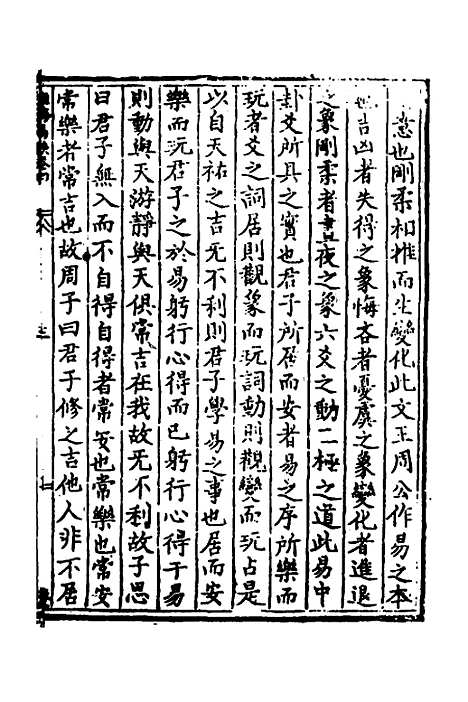 意也剛柔相推而生變化此文王周公作易之本
也吉凶者失得之象悔吝者憂虞之象變化者進退
之象剛柔者晝夜之象六爻之動二極之道此易中
卦爻所具之實也君子所居而安者易之序所樂而
玩者爻之詞居則觀象而玩詞動則觀變而玩占是
以自天祐之吉无不利則君子學易之事也居而安
樂而玩君子之於易躬行心得而已躬行心得于易
則動與天游靜與天俱常吉在我故无不利故子思
曰君子無入而不自得自得者常安也常樂也常安
常樂者常吉也故周子曰君子修之吉他人非不居